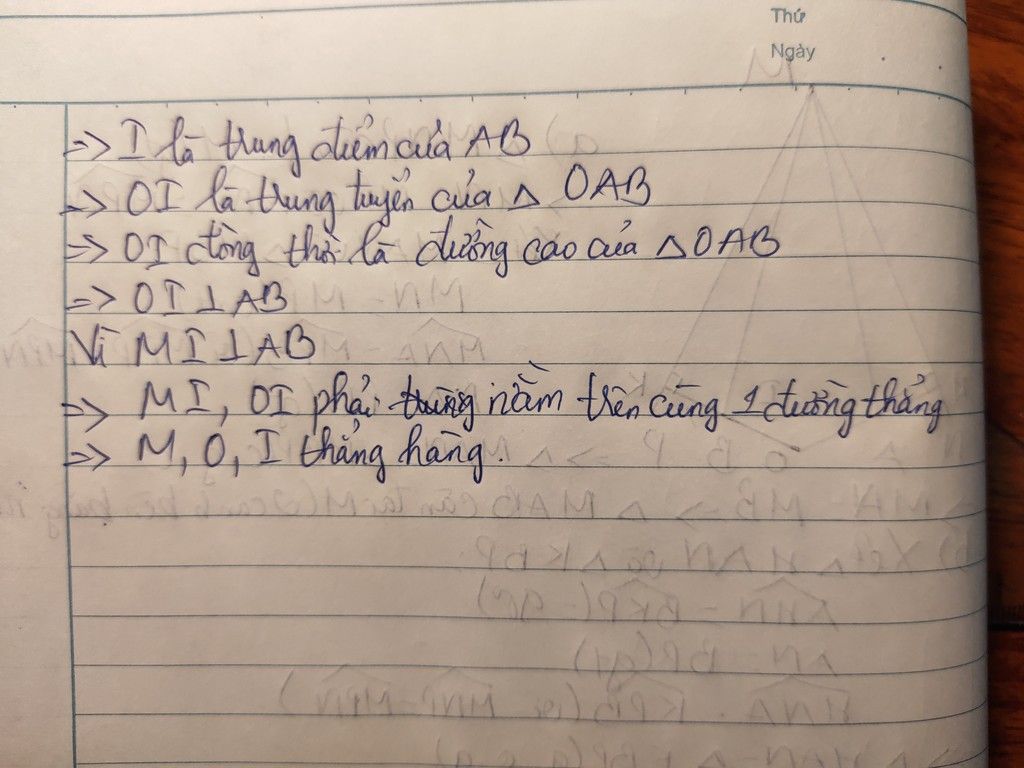 Thứ
Ngày
=> I là trung điểm của AB
=> OI là trung tuyến của △ OAB
=> OI đồng thời là đường cao của △OAB
=> OI ⊥ AB
Vì MI ⊥ AB
=> MI, OI phải nằm trên cùng 1 đường thẳng
=> M, O, I thẳng hàng.